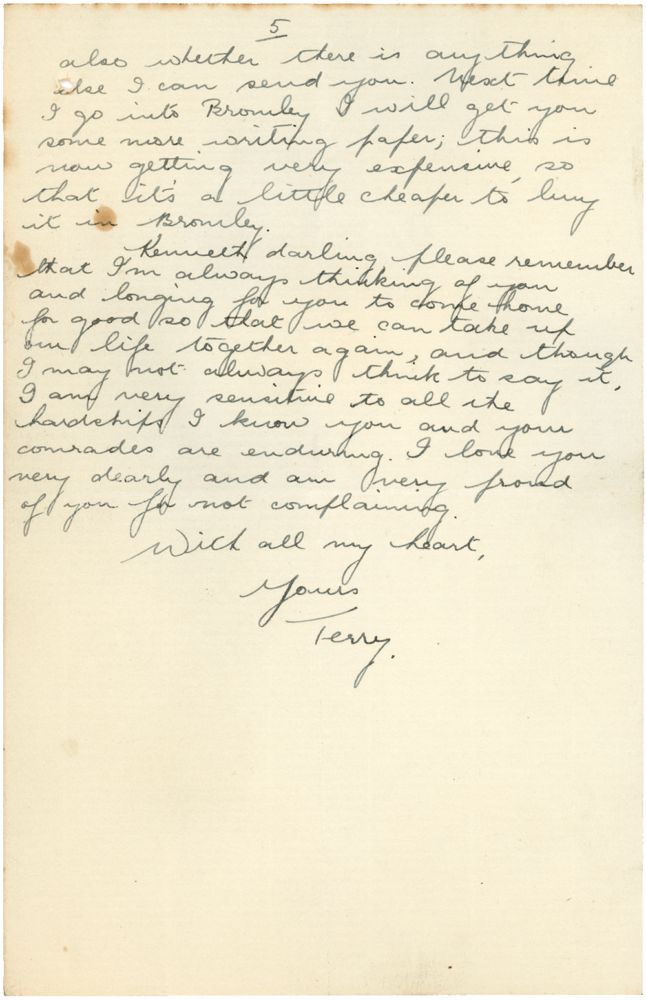 5
also whether there is anything
else I can send you. Next time
I go into Bromley I will get you
some more writing paper; this is
now getting very expensive, so
that it's a little cheaper to buy
it in Bromley.
Kenneth darling please remember
that I'm always thinking of you
and longing for you to come home
for good so that we can take up
our life together again, and though
I may not always think to say it,
I am very sensitive to all the
hardships I know you and your
comrades are enduring. I love you
very dearly and am very proud
of you for not complaining.
With all my heart,
Yours
Terry.